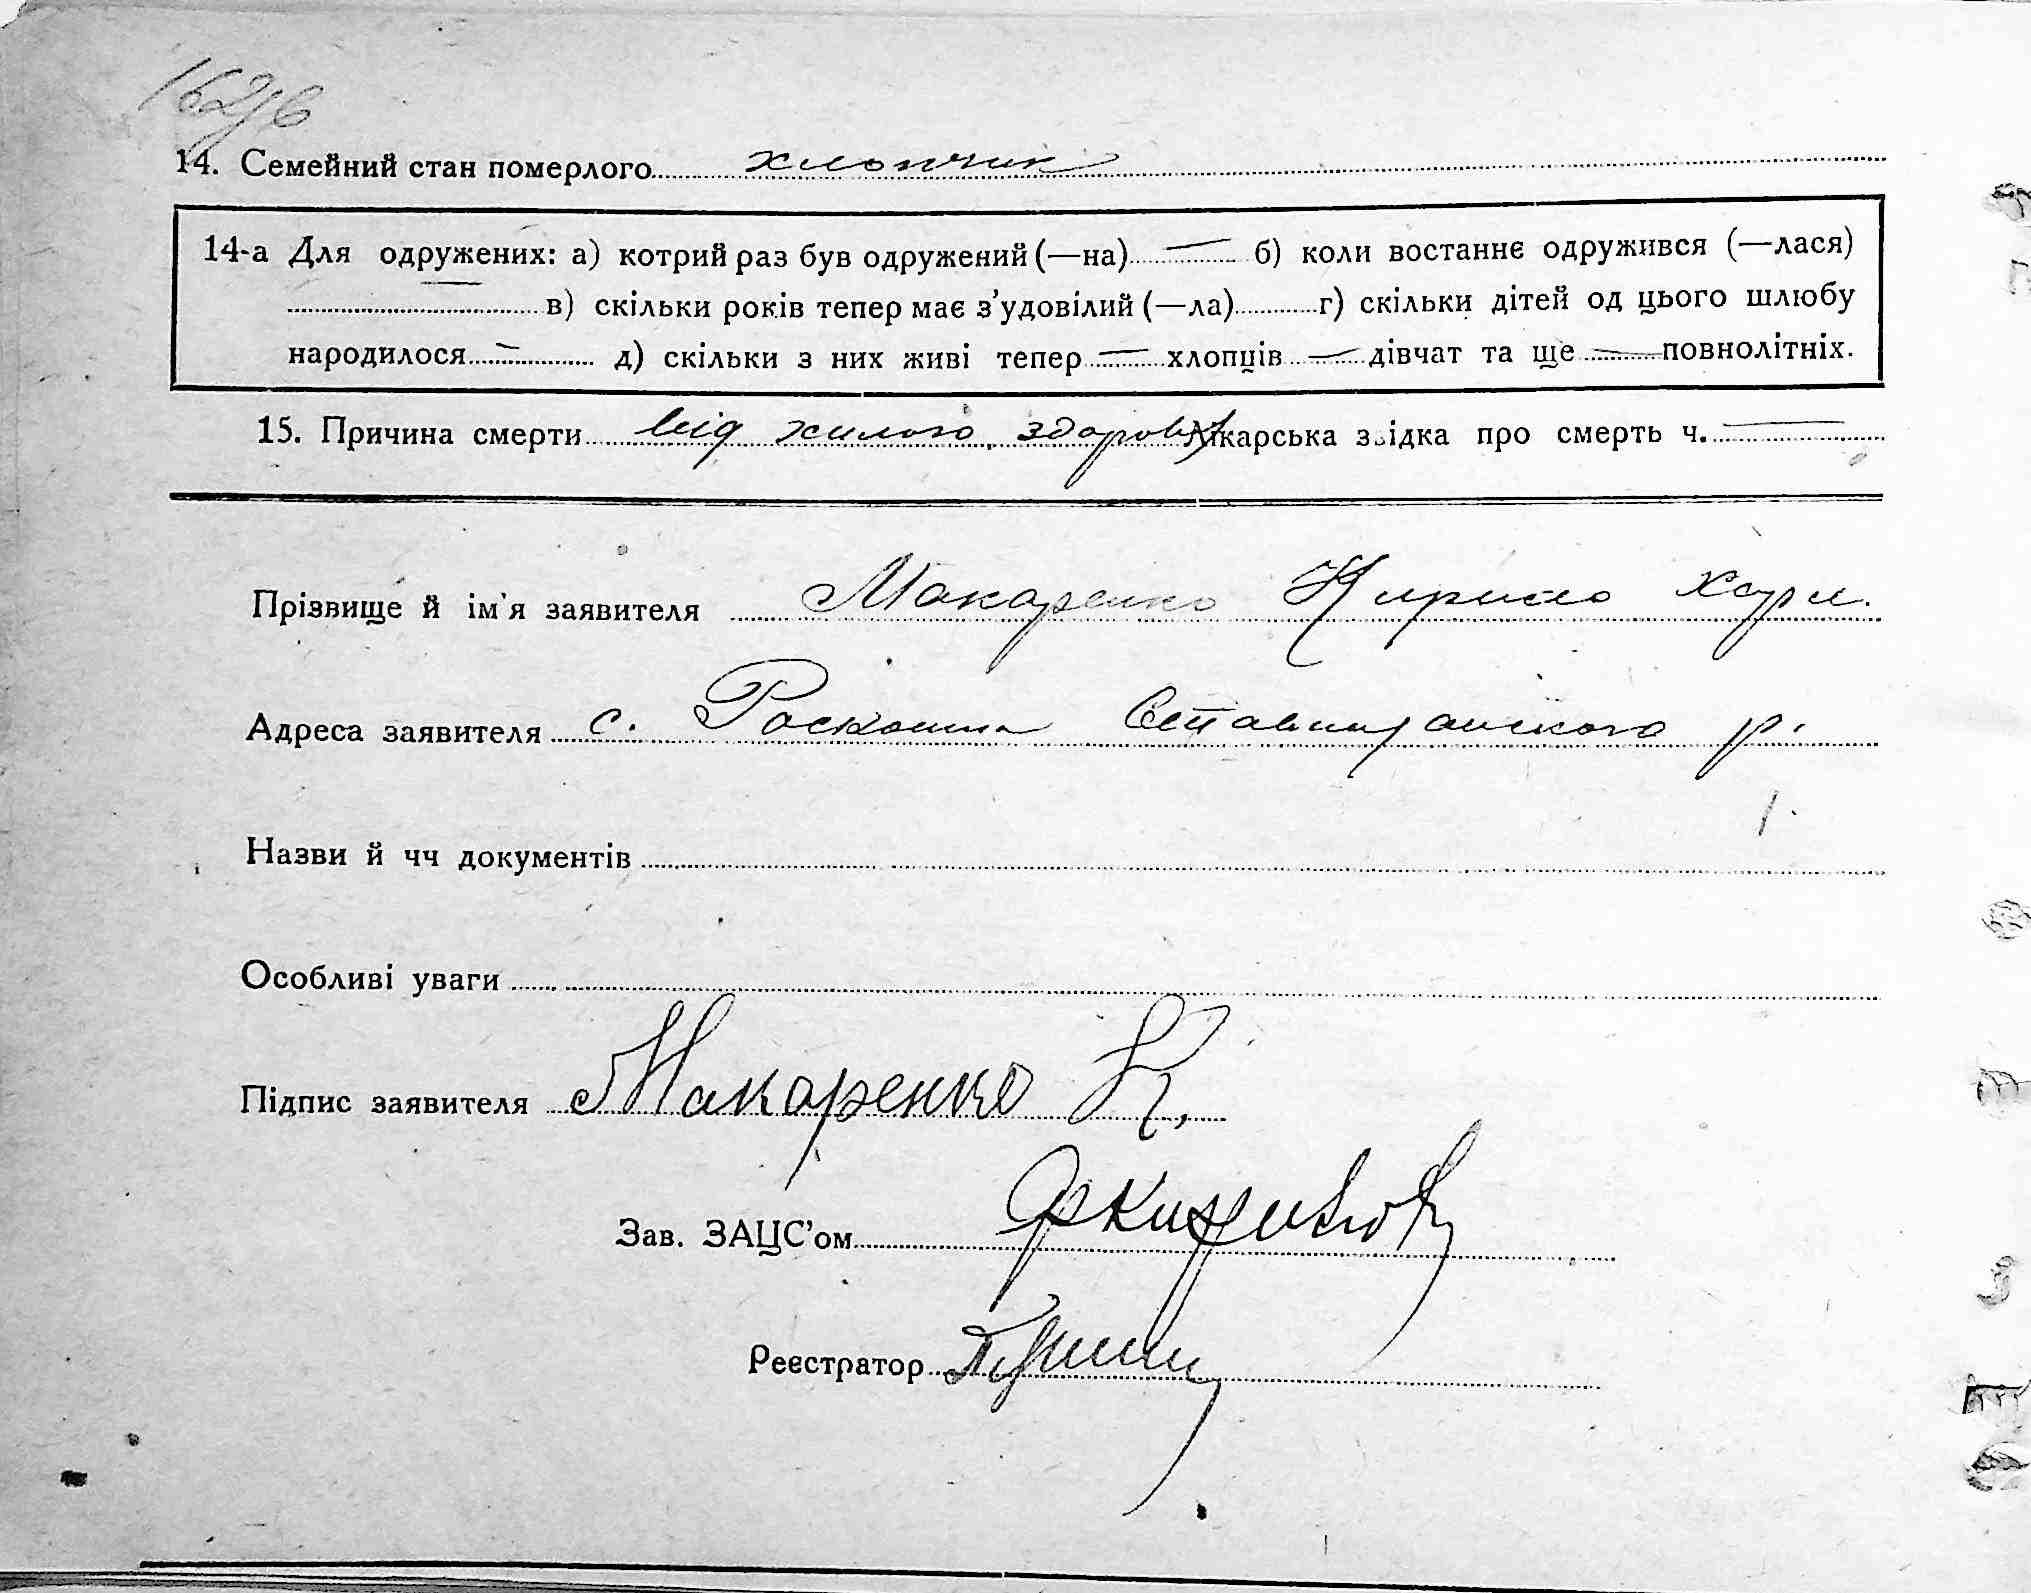 162зв
14. Семейний стан померлого хлопчик
14-а Для одружених: а) котрий раз був одружений (—на) — б) коли востаннє одружився (—лася)
— в) скільки років тепер має з'удовілий (—ла) г) скільки дітей од цього шлюбу
народилося — д) скільки з них живі тепер — хлопців — дівчат та ще — повнолітніх.
15. Причина смерти від хилого здоровя Лікарська звідка про смерть ч. —
Прізвище й ім'я заявителя Макаренко Кирило Хар.
Адреса заявителя с. Роскошна Ставищанского р.
Назви й чч документів
Особливі уваги
Підпис заявителя Макаренко К.
Зав. ЗАЦС'ом
Реєстратор